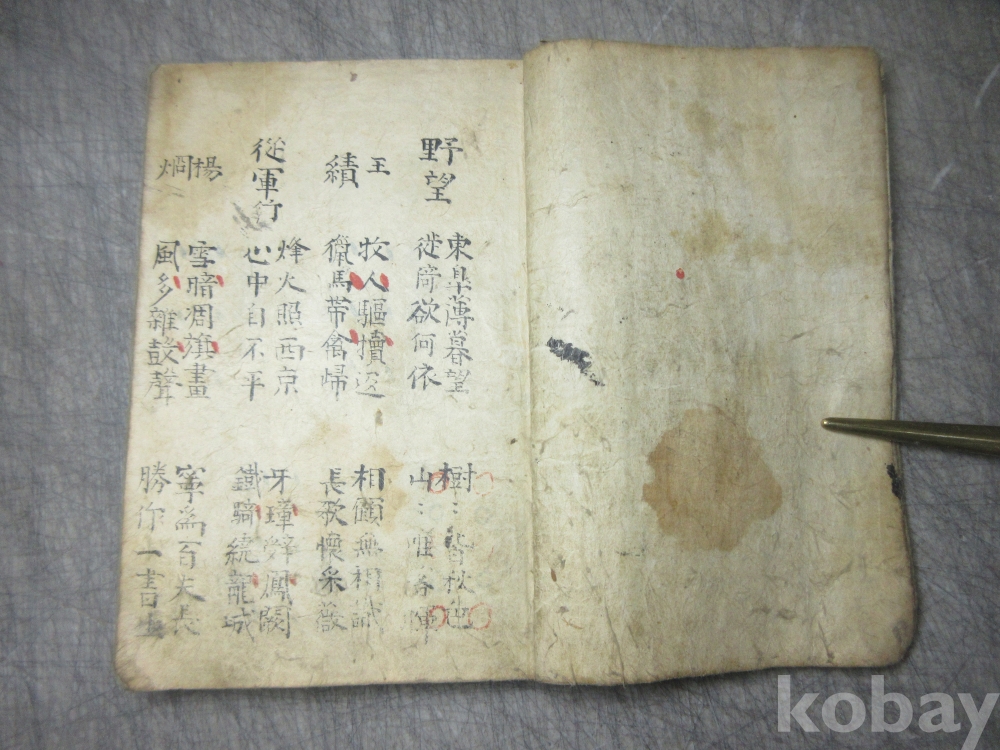 野望
東皐薄暮望
徙倚欲何依
樹〻皆秋色
山〻唯落暉
王
績
牧人驅犢返
獵馬帶禽歸
相顧無相識
長歌懷采薇
從軍行
烽火照西京
心中自不平
牙璋辭鳳闕
鐵騎繞龍城
楊
烱
雪暗凋旗畫
風多雜鼓聲
寧爲百夫長
勝作一書生
kobay